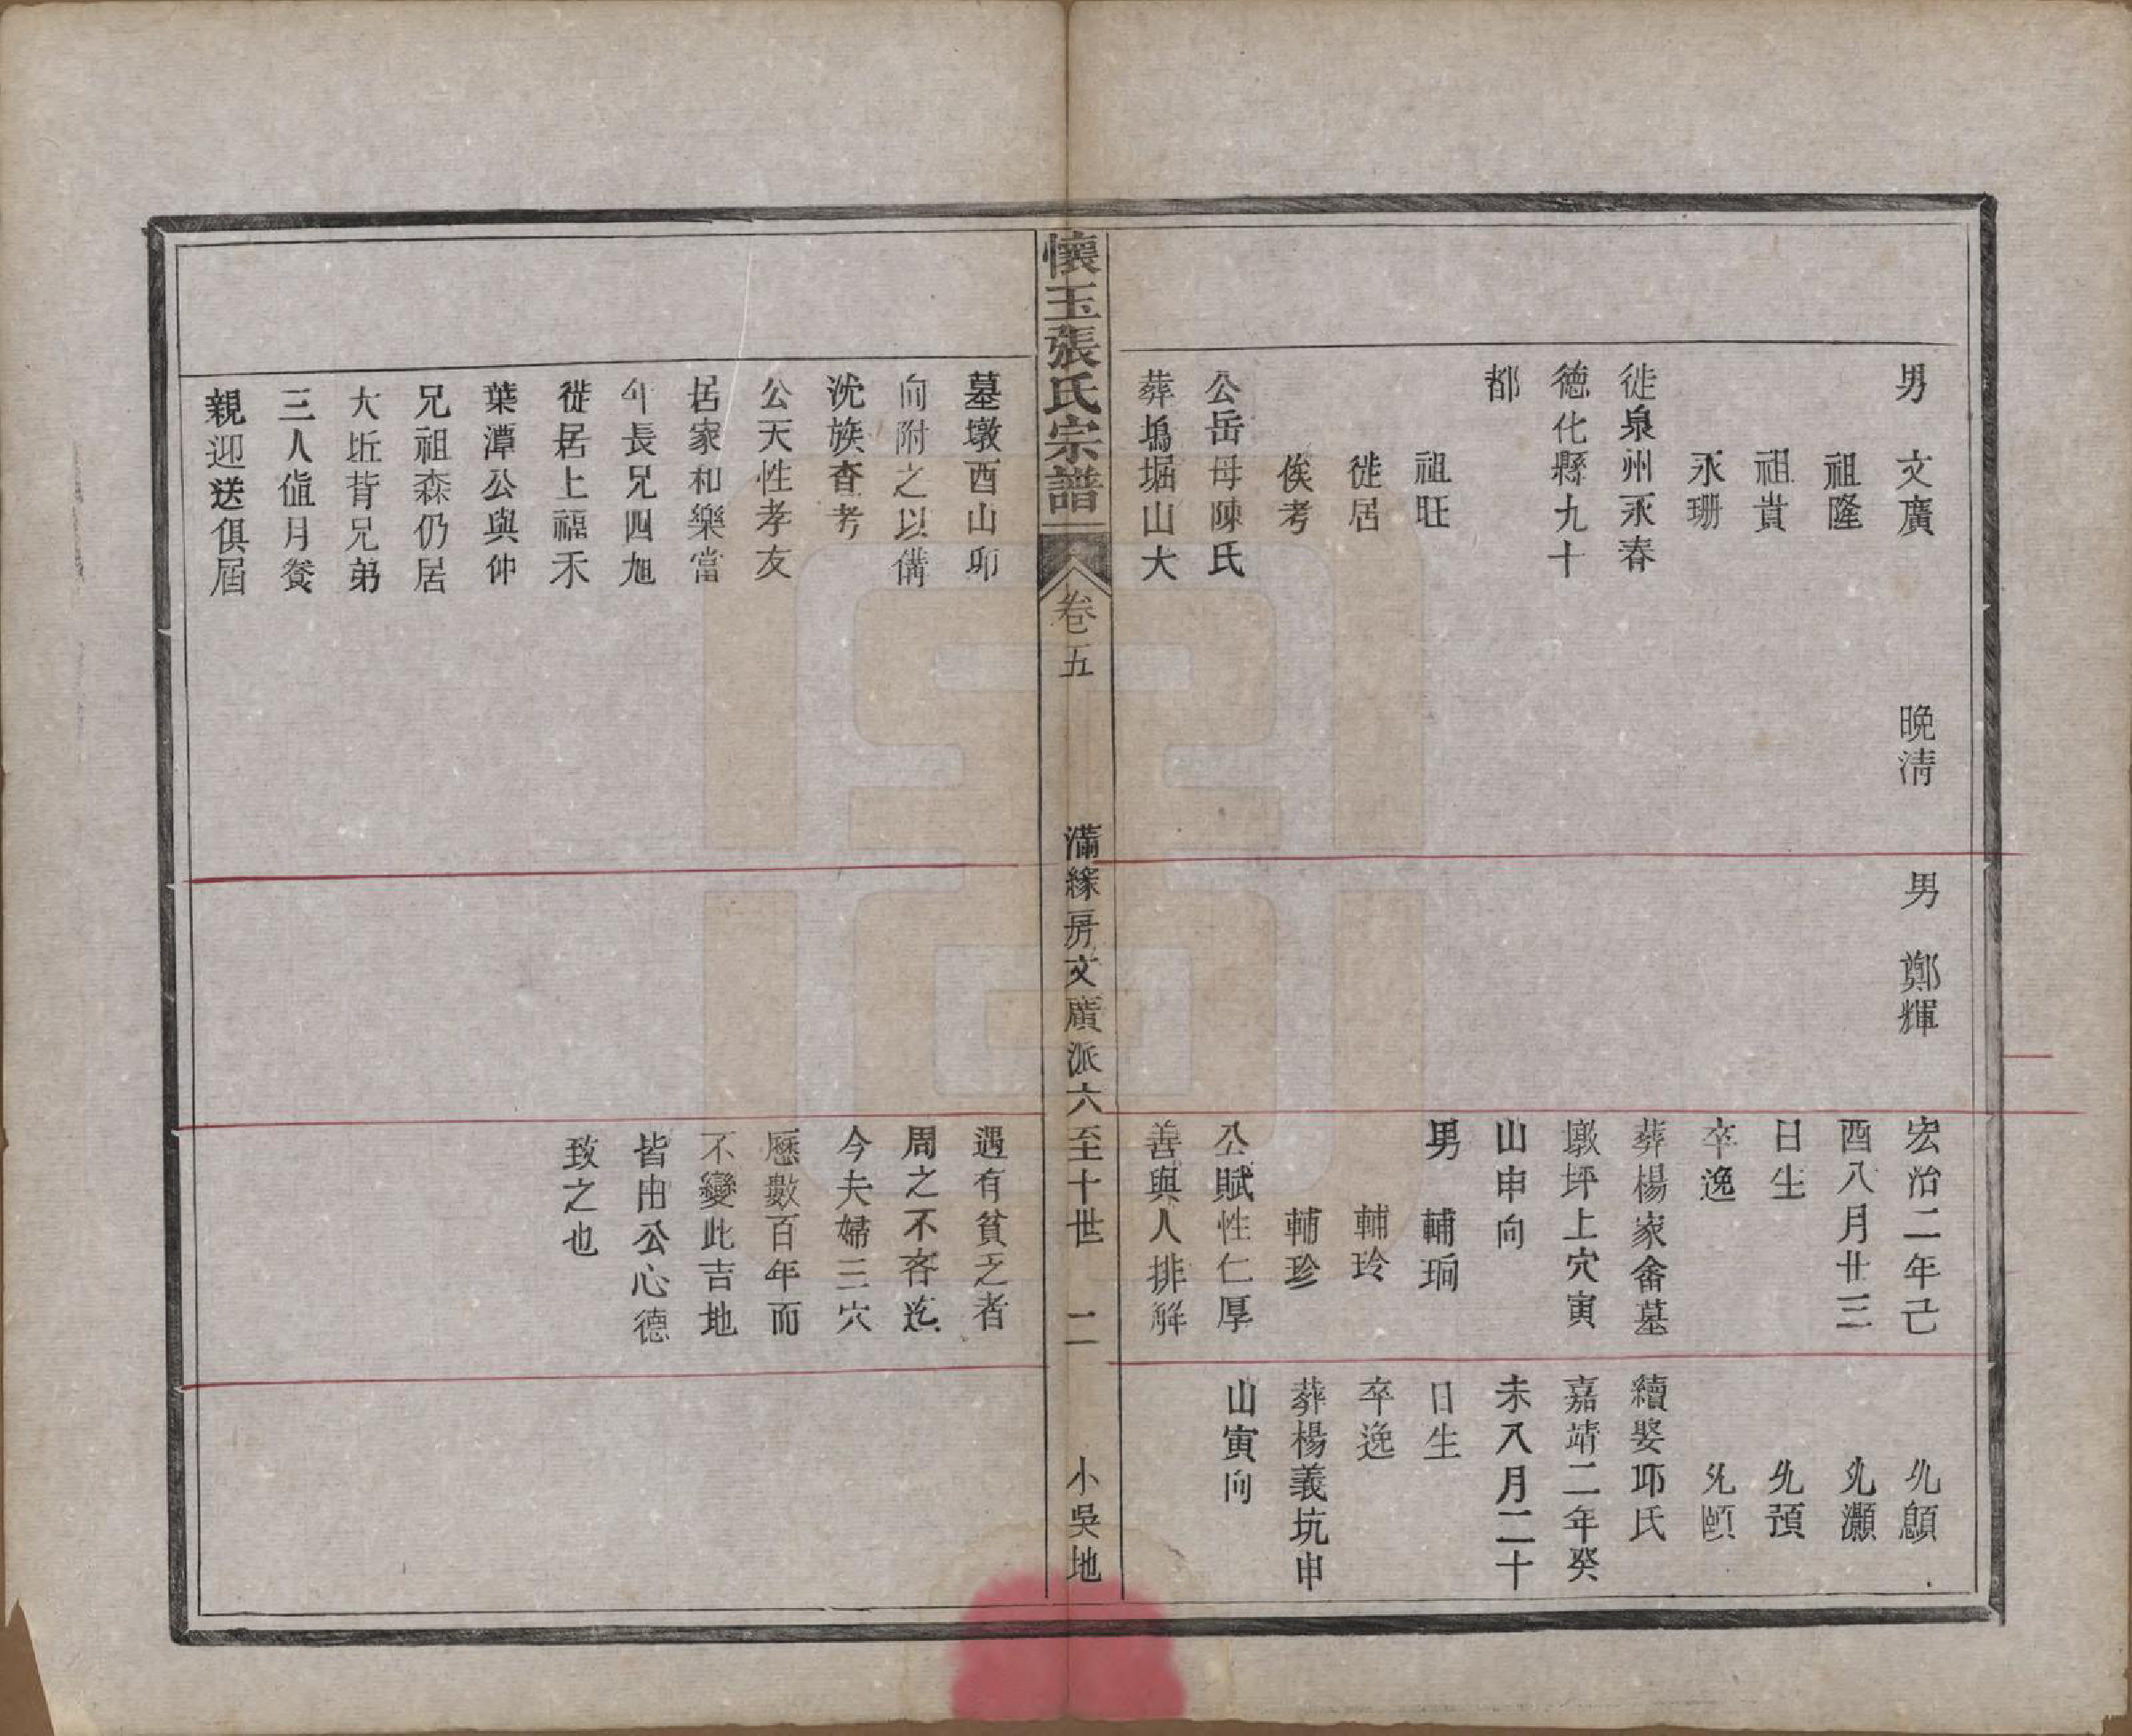 男　文廣　　　晚清
祖隆
祖貴
永珊
徙泉州永春
德化縣九十
都
祖旺
徙居
俟考
公岳母陳氏
葬塢堀山大
男　鄭輝
宏治二年己
酉八月廿三
日生
卒逸
葬楊家畲墓
墩坪上穴寅
山申向
男　輔珦
輔玲
輔珍
公賦性仁厚
善與人排解
灝
預
頤
續娶邱氏
嘉靖二年癸
未八月二十
日生
卒逸
葬楊義坑申
山寅向
懷玉張氏宗譜
卷五
滿緣房文廣派六至十世　二
小吳地
墓墩酉山卯
向附之以備
沈族查考
公天性孝友
居家和樂當
年長兄四旭
徙居上福禾
葉潭公與仲
兄祖森仍居
大坵背兄弟
三人值月餐
親迎送俱屆
遇有貧乏者
周之不吝迄
今夫婦三穴
歷數百年而
不變此吉地
皆由公心德
致之也